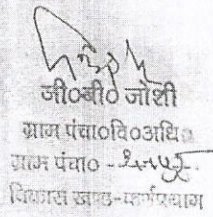 जी०बी० जोशी
ग्राम पंचा०वि०अधि०
ग्राम पंचा०-
विकास खण्ड-कर्णप्रयाग